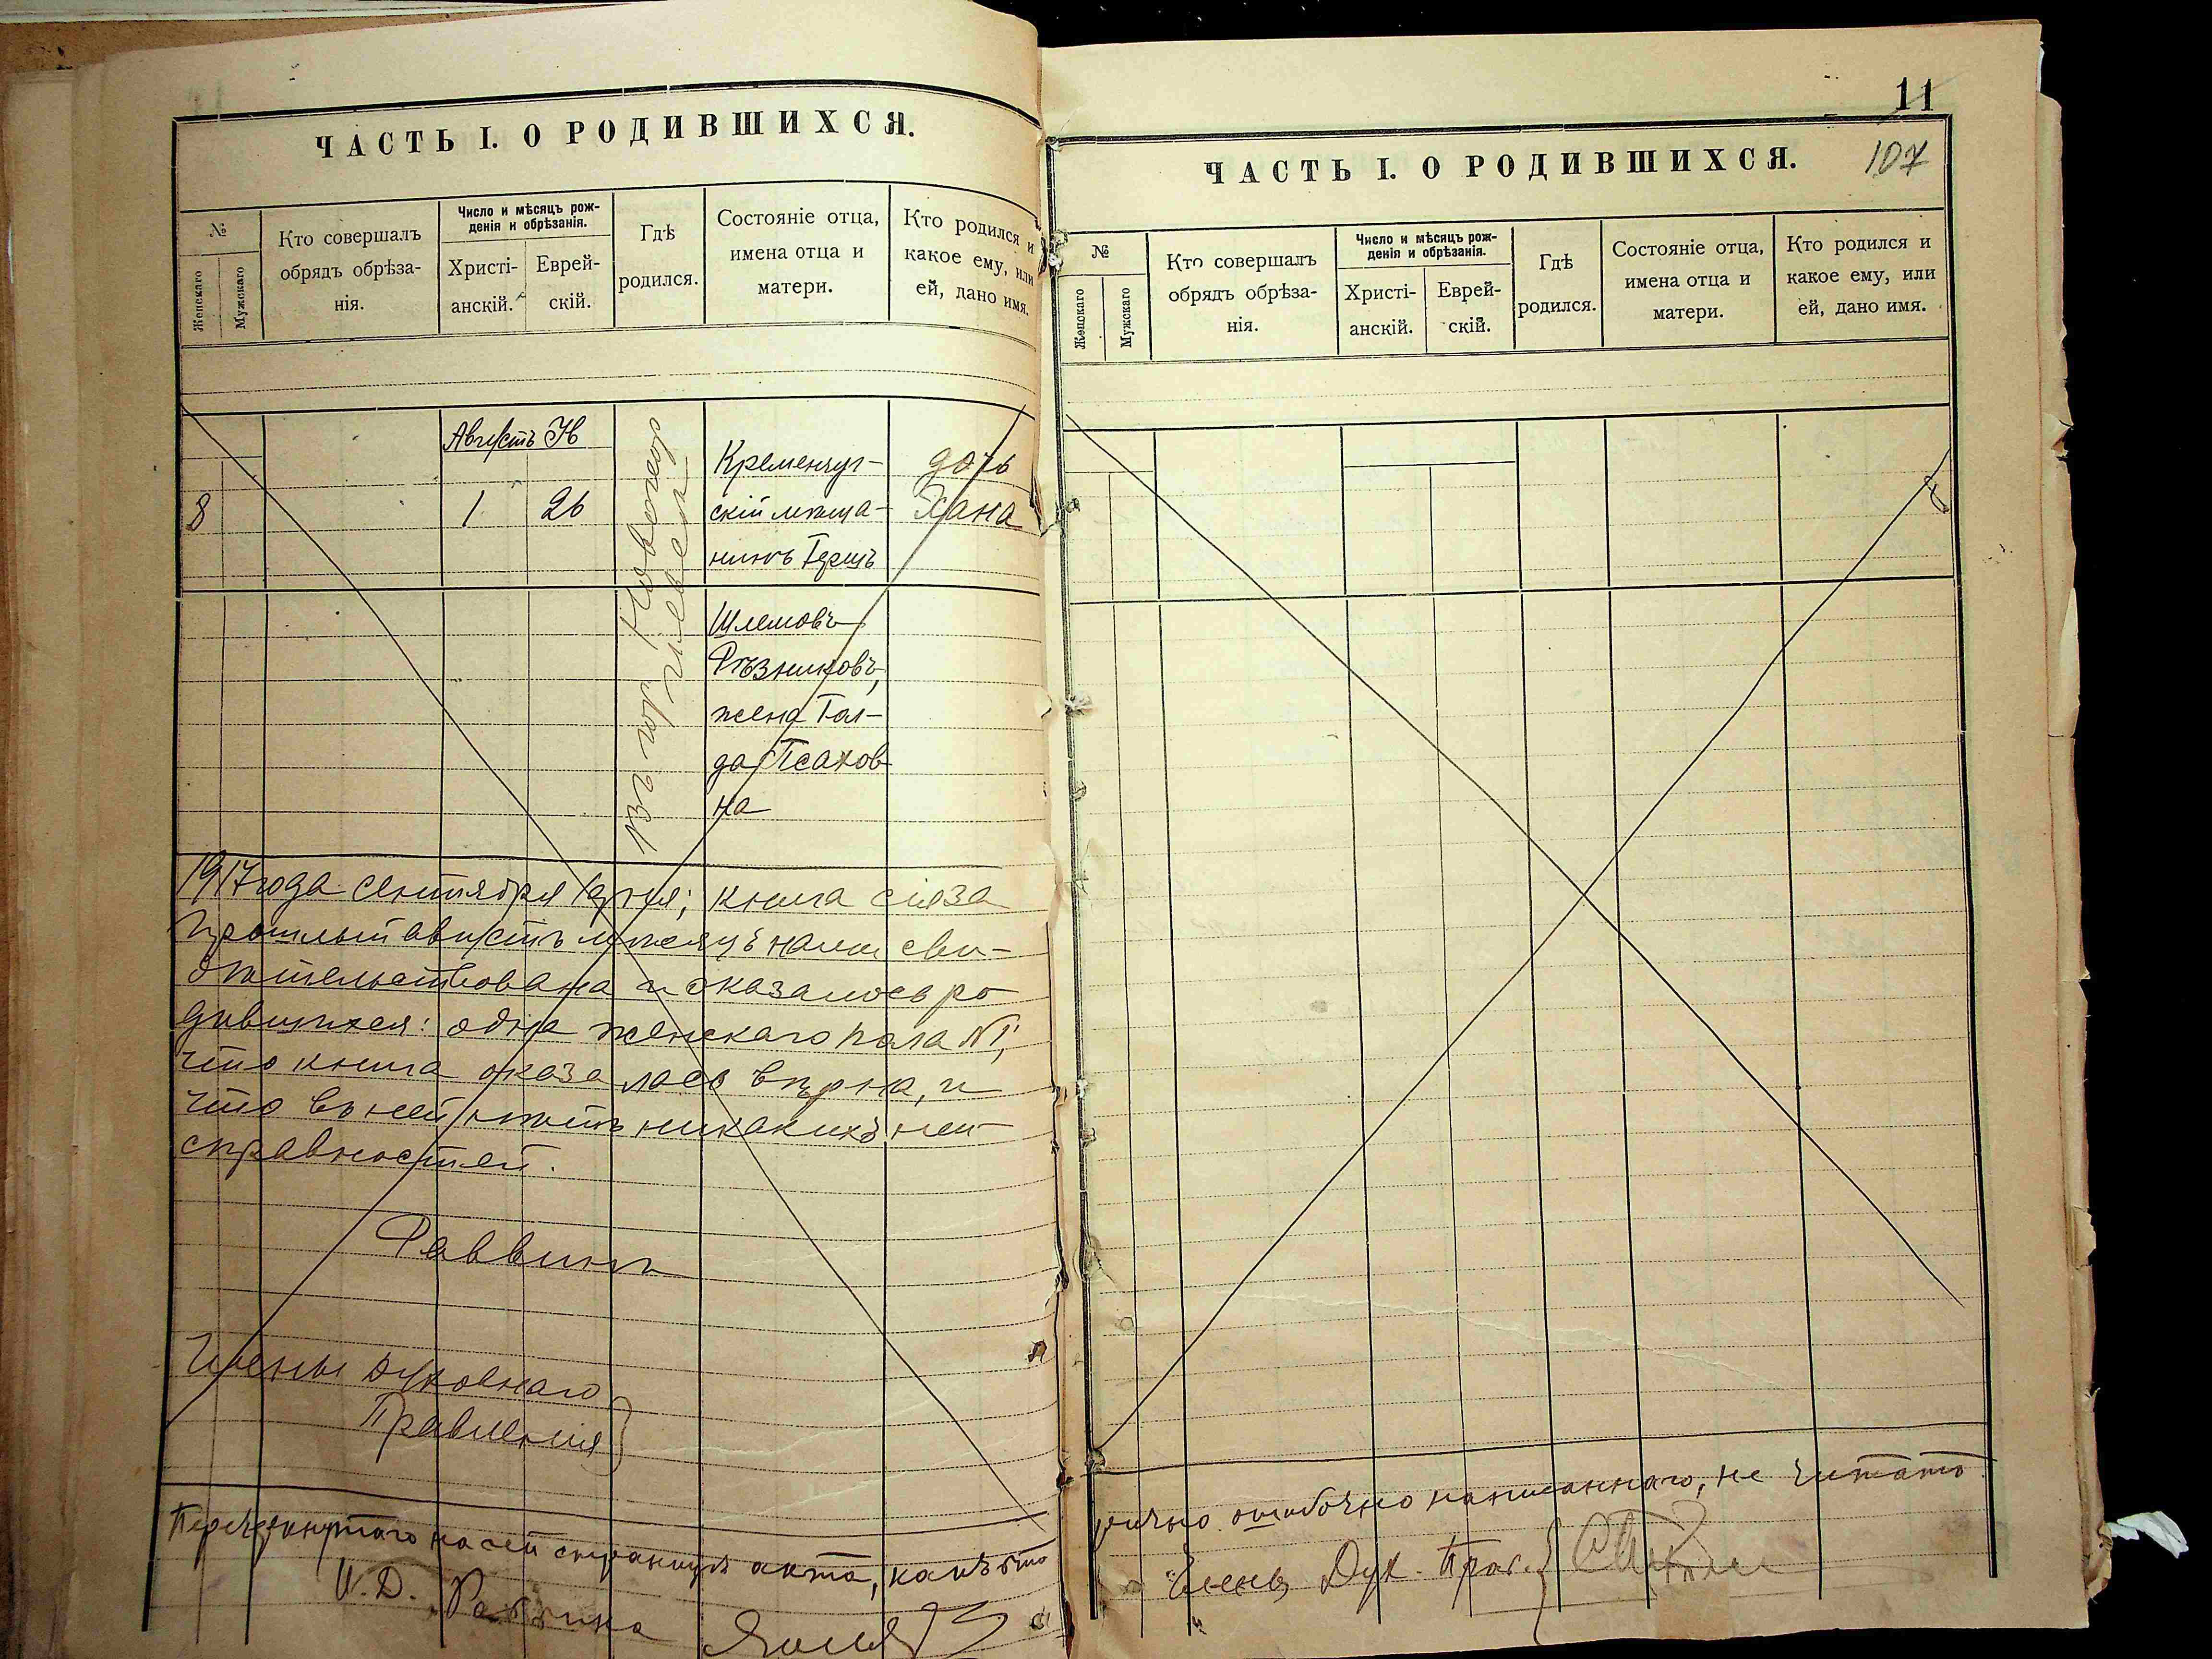 ЧАСТЬ I. О РОДИВШИХСЯ.
№
Женскаго
Мужскаго
Кто совершалъ
обрядъ обрѣза-
нія.
Число и мѣсяцъ рож-
денія и обрѣзанія.
Христі-
анскій.
Еврей-
скій.
Гдѣ
родился.
Состояніе отца,
имена отца и
матери.
Кто родился и
какое ему, или
ей, дано имя.
Августъ
8
1
26
Въ гор. Новогеор
гіевск
Кременчуг-
скій мѣща-
нинъ Гершъ
Шлемовъ
Рѣзниковъ,
жена Гол-
да Псахов
на
дочь
Хана
1917 года сентября 1 дня; книга сія за
прошлый августъ мѣсяцъ нами сви-
дѣтельствована и оказалось ро
дившихся: одна женскаго пола №1,
что книга оказалась вѣрна, и
что въ ней нѣтъ никакихъ неи
справностей.
Раввинъ
Члены духовнаго
Правленія
Перечеркнутаго на сей страницѣ акта, какъ
И. Д. Раввина
11
107
ЧАСТЬ I. О РОДИВШИХСЯ.
№
Женскаго
Мужскаго
Кто совершалъ
обрядъ обрѣза-
нія.
Число и мѣсяцъ рож-
денія и обрѣзанія.
Христі-
анскій.
Еврей-
скій.
Гдѣ
родился.
Состояніе отца,
имена отца и
матери.
Кто родился и
какое ему, или
ей, дано имя.
ошибочно написаннаго, не читать
Члены Дух. Прав.